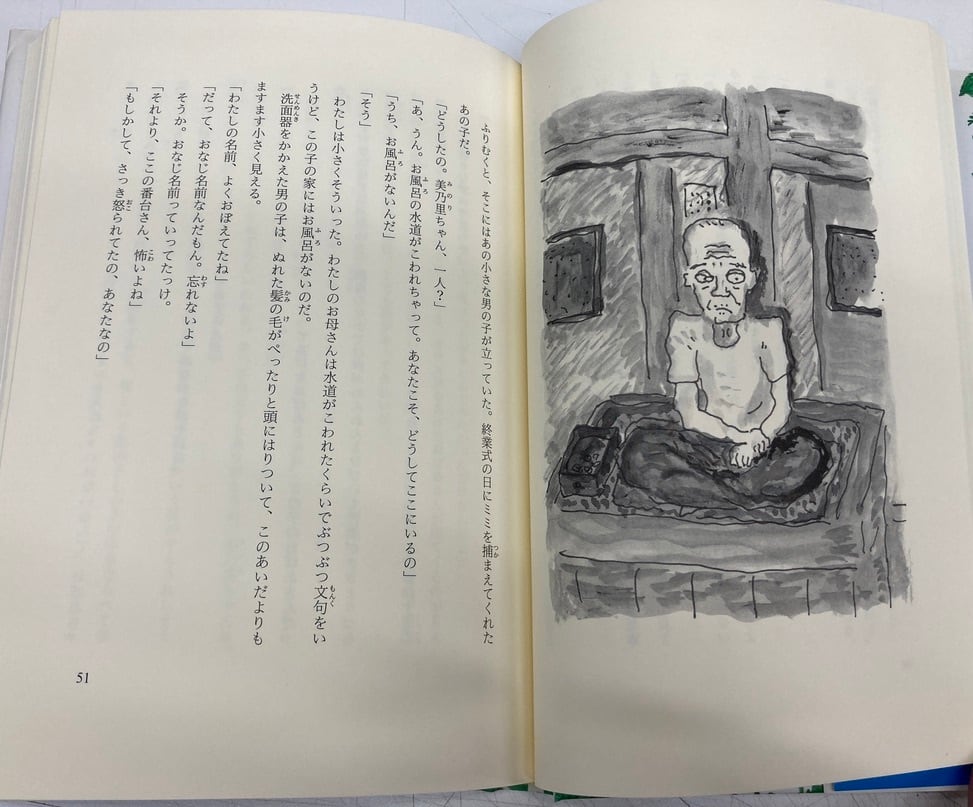 ふりむくと、そこにはあの小さな男の子が立っていた。終業式の日にミミを捕まえてくれた
あの子だ。
「どうしたの。美乃里ちゃん、一人？」
「あ、うん。お風呂の水道がこわれちゃって。あなたこそ、どうしてここにいるの」
「うち、お風呂がないんだ」
「そう」
わたしは小さくそういった。わたしのお母さんは水道がこわれたくらいでぶつぶつ文句をい
うけど、この子の家にはお風呂がないのだ。
洗面器をかかえた男の子は、ぬれた髪の毛がぺったりと頭にはりついて、このあいだよりも
ますます小さく見える。
「わたしの名前、よくおぼえてたね」
「だって、おなじ名前なんだもん。忘れないよ」
そうか。おなじ名前っていってたっけ。
「それより、ここの番台さん、怖いよね」
「もしかして、さっき怒られてたの、あなたなの」
51